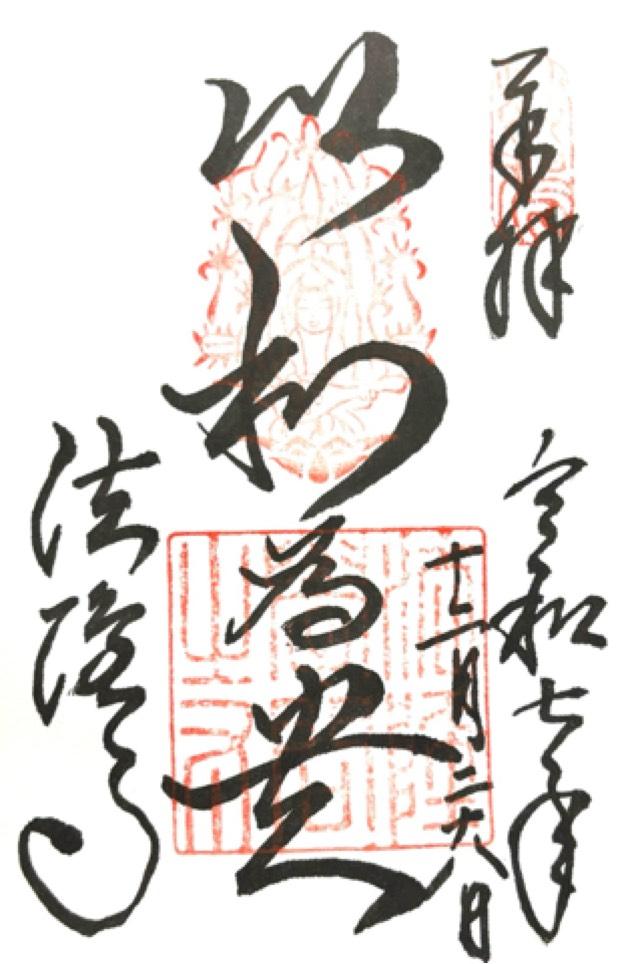 奉拝
令和七年
十二月二十八日
以和為貴
法隆寺